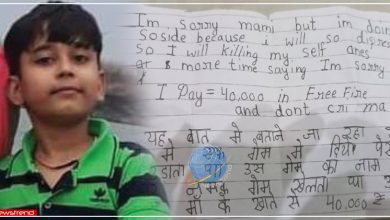 Im sorry mami but im doin
soside because i will so dipre
so I will killing my self
at more time saying Im sorry
I Pay = 40,000 in Free Fire
and dont cri ma
यह बात मै बताने जा रहा
मे गेम में दिया
उस गेम का नाम
गेम खेलता था
के खाते से 40,000
newstrend